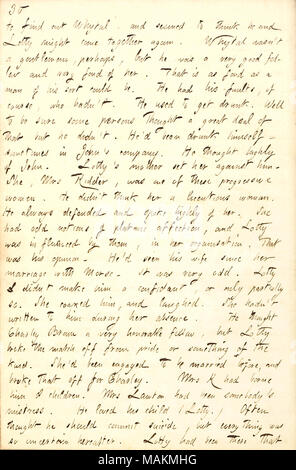 30
to find out Whytal and seemed to think he and
Lotty might come together again. Whytal wasn't
a gentleman, perhaps, but he was a very good fel-
low and very fond of her. That is as fond as a
man of his sort could be. He had his faults, of
course, who hadn't. He used to get drunk. Well
to be sure some persons thought a great deal of
that but he didn't. He'd been drunk himself
sometimes in John's company. He thought highly
of John. Lotty's mother set her against him.
She, Mrs Kidder, was one of these progressive
women. He didn't think her a licentious woman.
He always defended and spoke highly of her. She
had odd notions of platonic affection, and Lotty
was influenced by them, in her organisation. That
was his opinion. He'd seen his wife since her
marriage with Morse. It was very odd. Lotty
didn't make him a confidant, or only partially
so. She coaxed him, and laughed. She hadn't
written to him during her absence. He thought
Charley Brown a very honorable fellow, but Lotty
broke the match off from pride or something of the
kind. She'd been engaged to be married before, and
broke that off for Charley. Mrs K had borne
him 8 children. Mrs Lauton had been somebody's
mistress. He loved his child (Lotty.) Often
thought he should commit suicide, but everything was
so uncertain hereafter. Lotty had been there! That
alamy
Image ID: MAKMHG
www.alamy.com